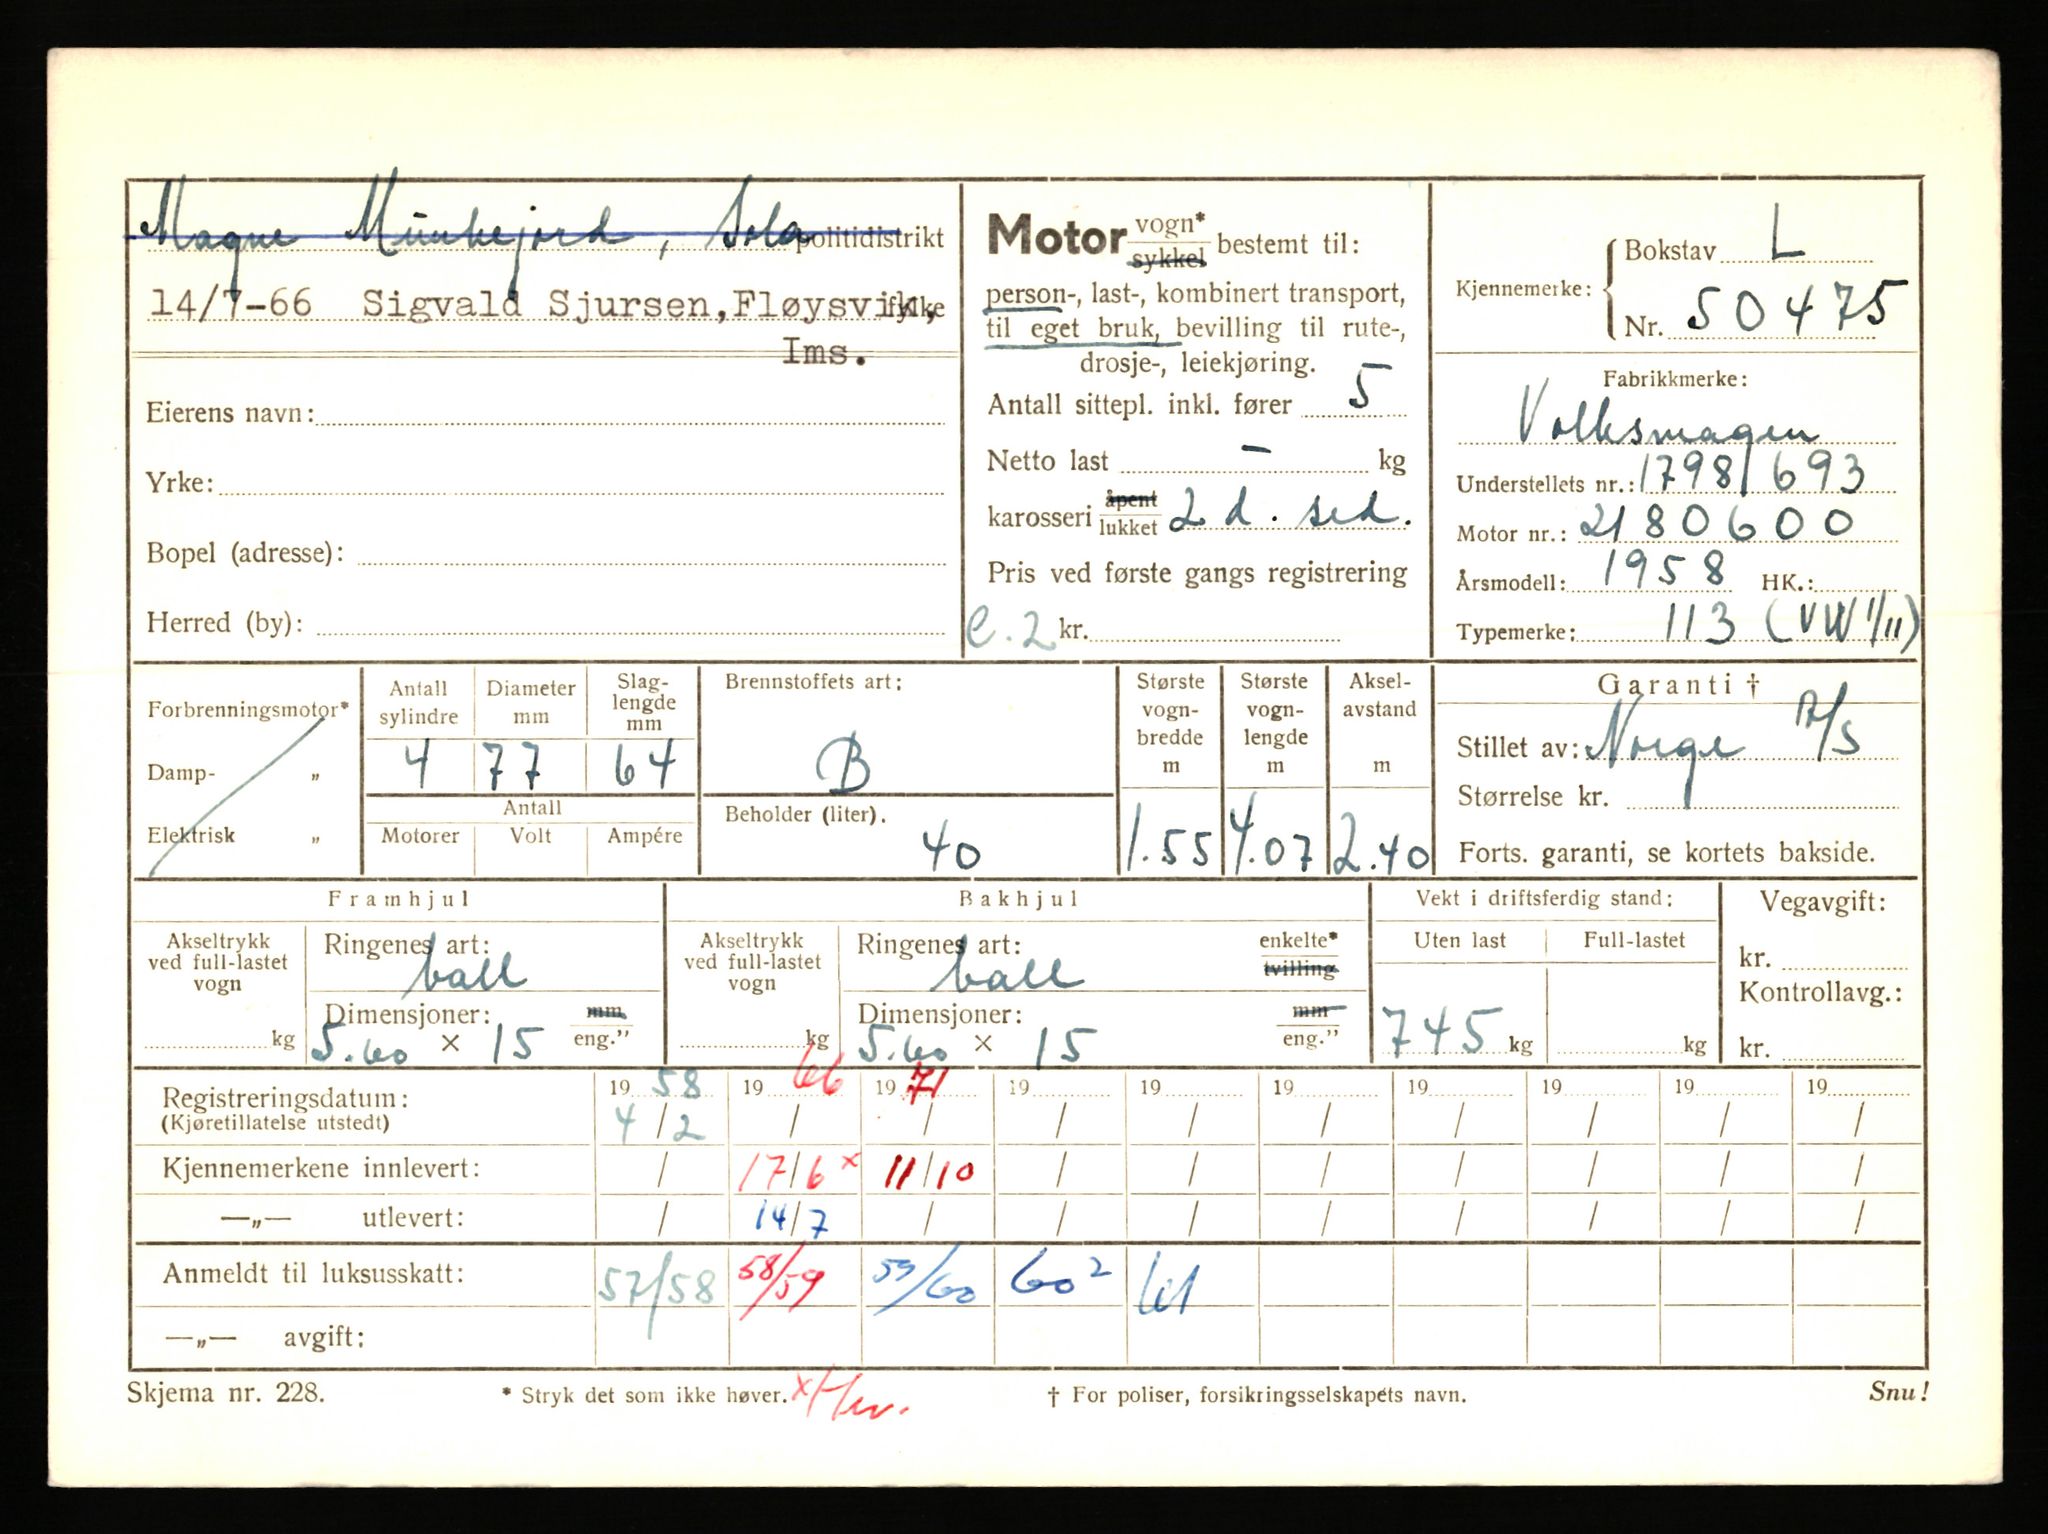 Magne Munkejord, Sola politidistrikt
14/7-66 Sigvald Sjursen, Fløysvik, fylke
Ims.
Eierens navn:
Yrke:
Bopel (adresse):
Herred (by):
Motor vogn* sykkel bestemt til:
person-, last-, kombinert transport,
til eget bruk, bevilling til rute-,
drosje-, leiekjøring.
Antall sittepl. inkl. fører 5
Netto last - kg
karosseri åpent lukket 2 d. sed.
Pris ved første gangs registrering
C.2 kr.
Kjennemerke: Bokstav L
Nr. 50475
Fabrikkmerke:
Volkswagen
Understellets nr.: 1798/693
Motor nr.: 2180600
Årsmodell: 1958 HK.:
Typemerke: 113 (VW 1/11)
Forbrenningsmotor*
Damp- „
Elektrisk „
Antall sylindre 4
Diameter mm 77
Slag-lengde mm 64
Antall
Motorer Volt Ampére
Brennstoffets art: B
Beholder (liter). 40
Største vogn-bredde m 1.55
Største vogn-lengde m 4.07
Aksel-avstand m 2.40
Garanti †
Stillet av: Norge A/S
Størrelse kr.
Forts. garanti, se kortets bakside.
Framhjul
Akseltrykk ved full-lastet vogn kg
Ringenes art: ball
Dimensjoner: mm eng."
5.60 × 15
Bakhjul
Akseltrykk ved full-lastet vogn kg
Ringenes art: ball enkelte* tvilling
Dimensjoner: mm eng."
5.60 × 15
Vekt i driftsferdig stand:
Uten last Full-lastet
745 kg kg
Vegavgift:
kr.
Kontrollavg.:
kr.
Registreringsdatum: 19 58 19 66 19 71 19 19 19 19 19 19 19
(Kjøretillatelse utstedt) 4/2 / / / / / / / / /
Kjennemerkene innlevert: / 17/6 x 11/10 / / / / / / /
—„— utlevert: / 14/7 / / / / / / / /
Anmeldt til luksusskatt: 57/58 58/59 59/60 60² 61
—„— avgift:
Skjema nr. 228. * Stryk det som ikke høver. x † For poliser, forsikringsselskapets navn. Snu!